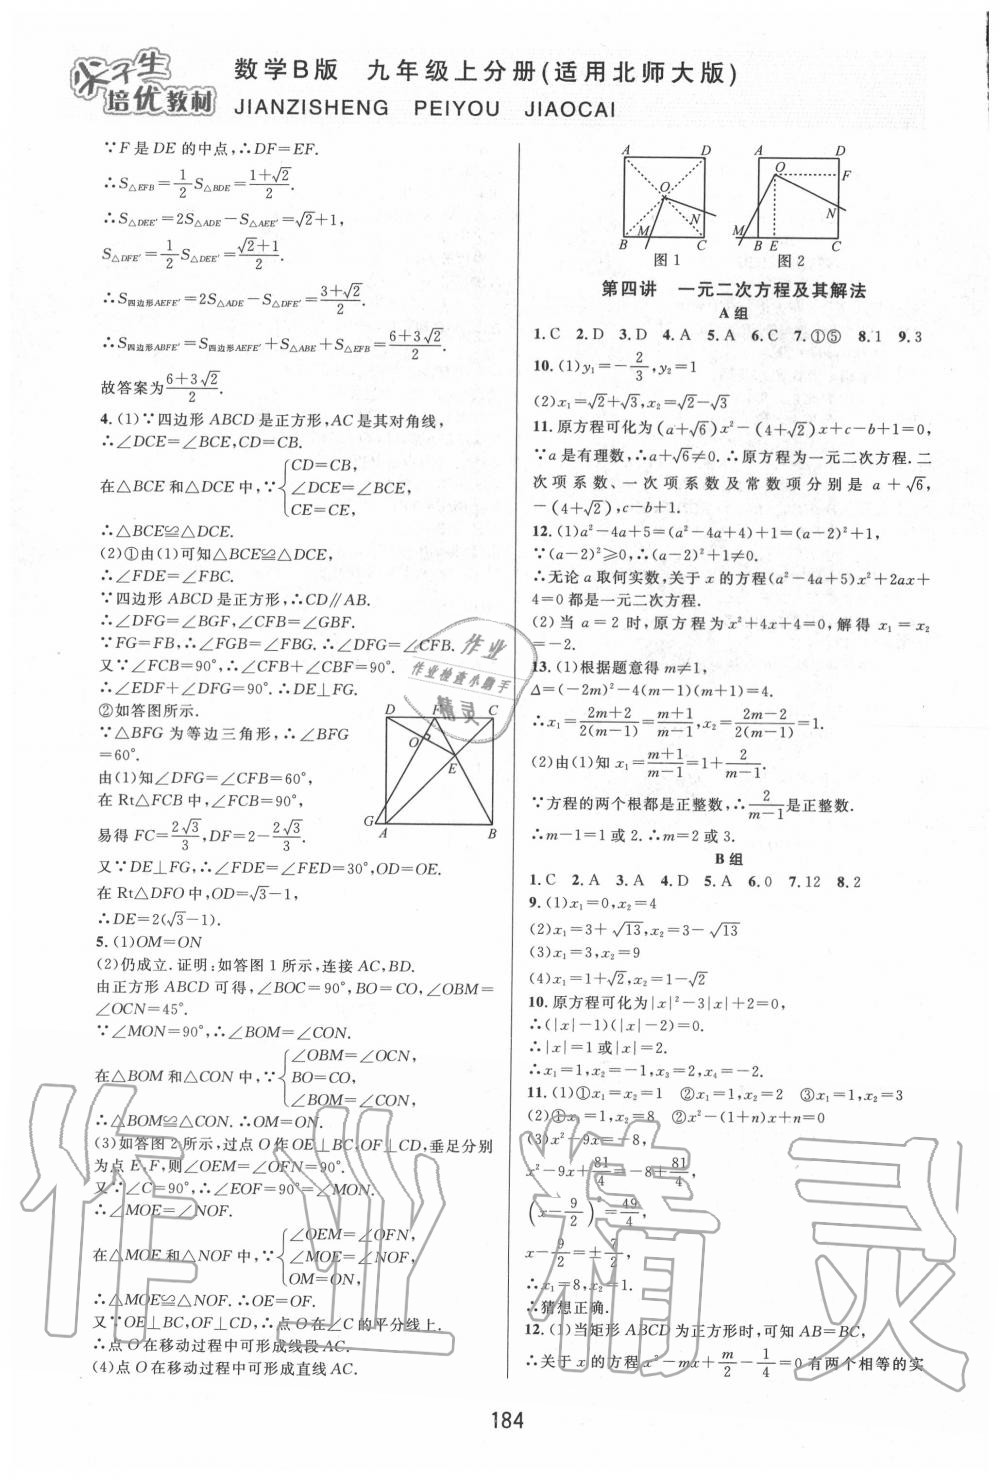 尖子生
培优教材
数学B版 九年级上分册(适用北师大版)
JIANZISHENG PEIYOU JIAOCAI
∵F是DE的中点,∴DF=EF.
∴S△EFB=1/2S△BDE=(1+√2)/2.
∴S△DEE′=2S△ADE-S△AEE′=√2+1,
S△DFE′=1/2S△DEE′=(√2+1)/2.
∴S四边形AEFE′=2S△ADE-S△DFE′=(3+√2)/2.
∴S四边形ABFE′=S四边形AEFE′+S△ABE+S△EFB=(6+3√2)/2.
故答案为(6+3√2)/2.
4.(1)∵四边形ABCD是正方形,AC是其对角线,
∴∠DCE=∠BCE,CD=CB.
在△BCE和△DCE中,∵{CD=CB,
∠DCE=∠BCE,
CE=CE,
∴△BCE≌△DCE.
(2)①由(1)可知△BCE≌△DCE,
∴∠FDE=∠FBC.
∵四边形ABCD是正方形,∴CD∥AB.
∴∠DFG=∠BGF,∠CFB=∠GBF.
∵FG=FB,∴∠FGB=∠FBG.∴∠DFG=∠CFB.
又∵∠FCB=90°,∴∠CFB+∠CBF=90°.
∴∠EDF+∠DFG=90°.∴DE⊥FG.
②如答图所示.
∵△BFG为等边三角形,∴∠BFG
=60°.
由(1)知∠DFG=∠CFB=60°,
在Rt△FCB中,∠FCB=90°,
易得FC=2√3/3,DF=2-2√3/3.
又∵DE⊥FG,∴∠FDE=∠FED=30°,OD=OE.
在Rt△DFO中,OD=√3-1,
∴DE=2(√3-1).
D F C
O
E
G A B
5.(1)OM=ON
(2)仍成立.证明:如答图1所示,连接AC,BD.
由正方形ABCD可得,∠BOC=90°,BO=CO,∠OBM=
∠OCN=45°.
∵∠MON=90°,∴∠BOM=∠CON.
在△BOM和△CON中,∵{∠OBM=∠OCN,
BO=CO,
∠BOM=∠CON,
∴△BOM≌△CON.∴OM=ON.
(3)如答图2所示,过点O作OE⊥BC,OF⊥CD,垂足分别
为点E,F,则∠OEM=∠OFN=90°.
又∵∠C=90°,∴∠EOF=90°=∠MON.
∴∠MOE=∠NOF.
在△MOE和△NOF中,∵{∠OEM=∠OFN,
∠MOE=∠NOF,
OM=ON,
∴△MOE≌△NOF.∴OE=OF.
又∵OE⊥BC,OF⊥CD,∴点O在∠C的平分线上.
∴点O在移动过程中可形成线段AC.
(4)点O在移动过程中可形成直线AC.
A D
O
M N
B C
图1
A D
O F
N
M B E C
图2
第四讲 一元二次方程及其解法
A组
1.C 2.D 3.D 4.A 5.A 6.C 7.①⑤ 8.1 9.3
10.(1)y₁=-2/3,y₂=1
(2)x₁=√2+√3,x₂=√2-√3
11.原方程可化为(a+√6)x²-(4+√2)x+c-b+1=0,
∵a是有理数,∴a+√6≠0.∴原方程为一元二次方程.二
次项系数、一次项系数及常数项分别是a+√6,
-(4+√2),c-b+1.
12.(1)a²-4a+5=(a²-4a+4)+1=(a-2)²+1,
∵(a-2)²≥0,∴(a-2)²+1≠0.
∴无论a取何实数,关于x的方程(a²-4a+5)x²+2ax+
4=0都是一元二次方程.
(2)当a=2时,原方程为x²+4x+4=0,解得x₁=x₂
=-2.
13.(1)根据题意得m≠1,
Δ=(-2m)²-4(m-1)(m+1)=4.
∴x₁=(2m+2)/2(m-1)=(m+1)/(m-1),x₂=(2m-2)/2(m-1)=1.
(2)由(1)知x₁=(m+1)/(m-1)=1+2/(m-1).
∵方程的两个根都是正整数,∴2/(m-1)是正整数.
∴m-1=1或2.∴m=2或3.
B组
1.C 2.A 3.A 4.D 5.A 6.0 7.12 8.2
9.(1)x₁=0,x₂=4
(2)x₁=3+√13,x₂=3-√13
(3)x₁=3,x₂=9
(4)x₁=1+√2,x₂=1-√2
10.原方程可化为|x|²-3|x|+2=0,
∴(|x|-1)(|x|-2)=0.
∴|x|=1或|x|=2.
∴x₁=1,x₂=-1,x₃=2,x₄=-2.
11.(1)①x₁=x₂=1 ②x₁=1,x₂=2 ③x₁=1,x₂=3
(2)①x₁=1,x₂=8 ②x²-(1+n)x+n=0
(3)x²-9x=-8,
x²-9x+81/4=-8+81/4,
(x-9/2)²=49/4,
x-9/2=±7/2,
∴x₁=8,x₂=1.
∴猜想正确.
12.(1)当矩形ABCD为正方形时,可知AB=BC,
∴关于x的方程x²-mx+m/2-1/4=0有两个相等的实
184
作业
作业检查小帮手
精灵
作业精灵